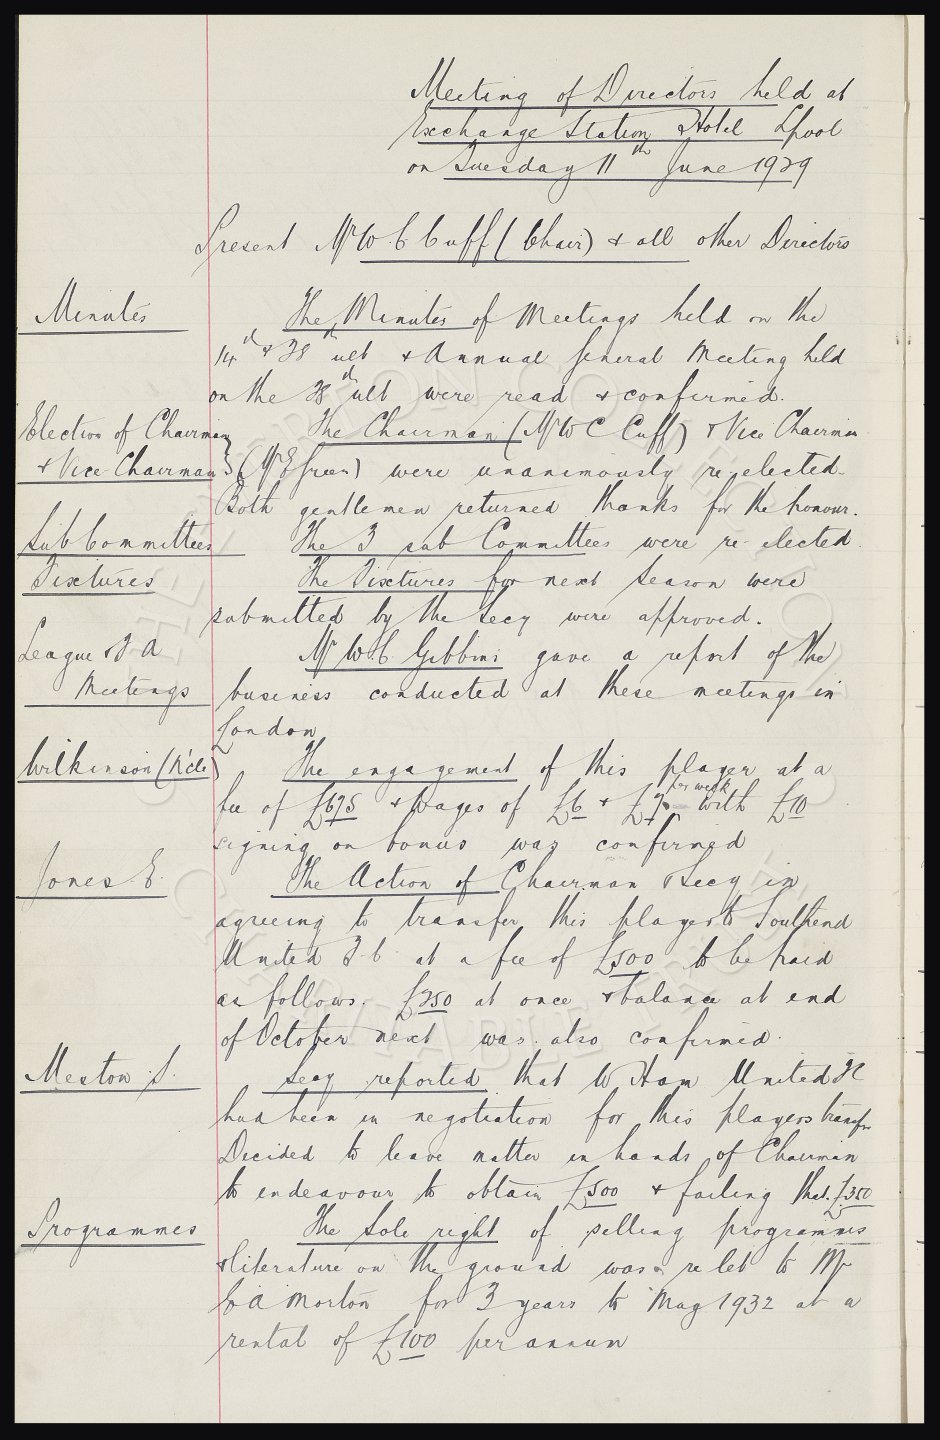 Meeting of Directors held at
Exchange Station Hotel Lpool
on Tuesday 11th June 1929
Present Mr W. C Cuff (Chair) & all other Directors
Minutes
The Minutes of Meetings held on the
14th & 28th ult & Annual General Meeting held
on the 28th ult were read & confirmed.
Election of Chairman
& Vice Chairman
The Chairman (Mr W C Cuff) & Vice Chairman
(Mr E Green) were unanimously re-elected.
Both gentlemen returned thanks for the honour.
Sub Committees
The 3 sub Committees were re-elected
Fixtures
The Fixtures for next Season were
submitted by the Secy were approved.
League & F A
Meetings
Mr W. C. Gibbins gave a report of the
business conducted at these meetings in
London
Wilkinson (N'cle)
The engagement of this player at a
fee of £675 & wages of £6 & £7 per week with £10
signing on bonus was confirmed
Jones E.
The Action of Chairman & Secy in
agreeing to transfer this player to Southend
United F. C. at a fee of £500 to be paid
as follows. £250 at once & balance at end
of October next was also confirmed.
Meston S.
Secy reported that W Ham United FC
had been in negotiation for this players transfer
Decided to leave matter in hands of Chairman
to endeavour to obtain £500 & failing that. £350
Programmes
The Sole right of selling programmes
& literature on the ground was re let to Mr
C A Morton for 3 years to May 1932 at a
rental of £100 per annum